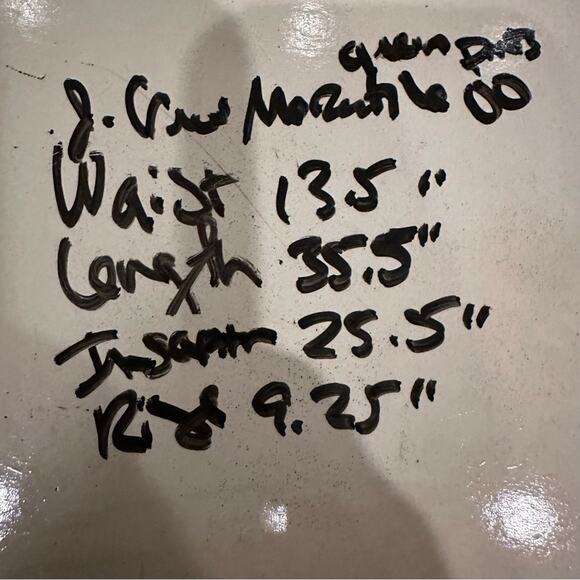 green Dots
J. Crew Mercantile 00
Waist 13.5"
Length 35.5"
Inseam 25.5"
Rise 9.25"